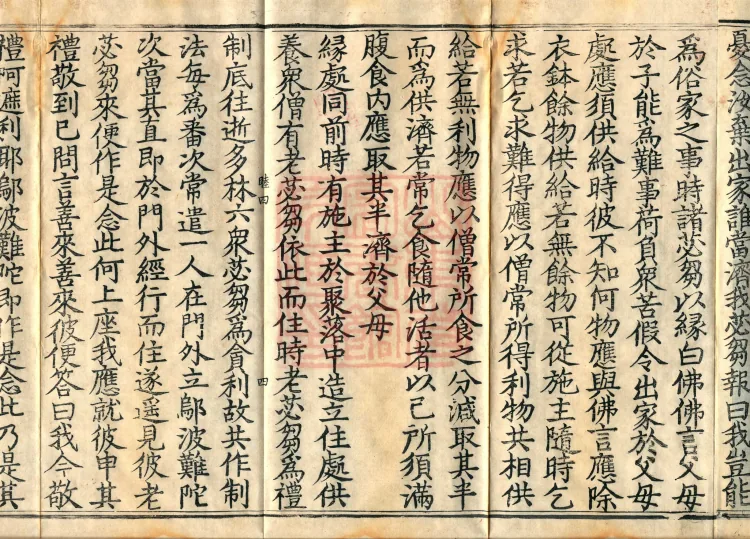 憂念汝棄出家誰當濟我苾芻報曰我豈能
為俗家之事時諸苾芻以緣白佛佛言父母
於子能為難事荷負眾苦假令出家於父母
處應須供給時彼不知何物應與佛言應除
衣鉢餘物供給若無餘物可從施主隨時乞
求若乞求難得應以僧常所得利物共相供
給若無利物應以僧常所食之分減取其半
而為供濟若常乞食隨他活者以己所須滿
腹食內應取其半濟於父母
緣處同前時有施主於聚落中造立住處供
養眾僧有老苾芻依此而住時老苾芻為禮
睦四
四
制底往逝多林六眾苾芻為貪利故共作制
法每為番次常遣一人在門外立鄔波難陀
次當其直即於門外經行而住遂遙見彼老
苾芻來便作是念此何上座我應就彼申其
禮敬到已問言善來善來彼便答曰我今敬
禮阿遮利耶鄔波難陀即作是念此乃是其